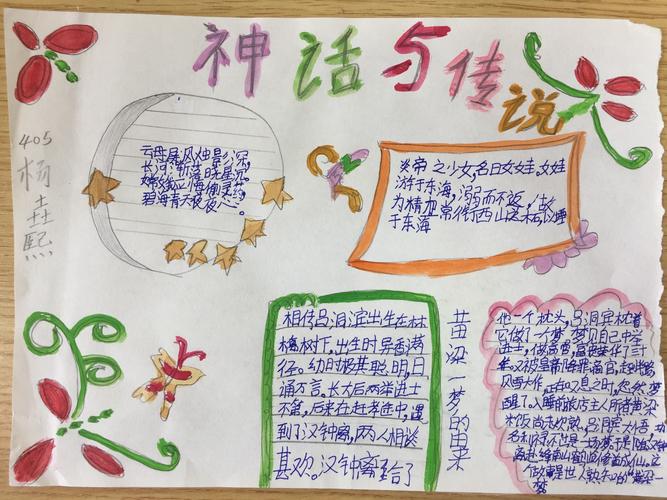 神话与传说
405
杨壵熙
云母屏风烛影深，
长河渐落晓星沉。
嫦娥应悔偷灵药，
碧海青天夜夜心。
炎帝之少女，名曰女娃，女娃
游于东海，溺而不返，故
为精卫常衔西山之木石，以堙
于东海
黄粱一梦的由来
相传吕洞宾出生在林
檎树下，出生时异香满
径。幼时极其聪明，日
诵万言。长大后两举进士
不第，后来在赶考途中，遇
到了汉钟离，两人相谈
甚欢。汉钟离给了
他一个枕头，吕洞宾枕着
它做了一个梦，梦见自己中举
进士，做高官，富贵荣华了三十
年。又被皇帝降罪罢官，赶到
风雪大作，正在叹息之时，忽然，梦
醒了。入睡前旅店主人所煮黄粱
米饭尚未炊熟。吕洞宾大悟，功
名利禄不过是一场美梦